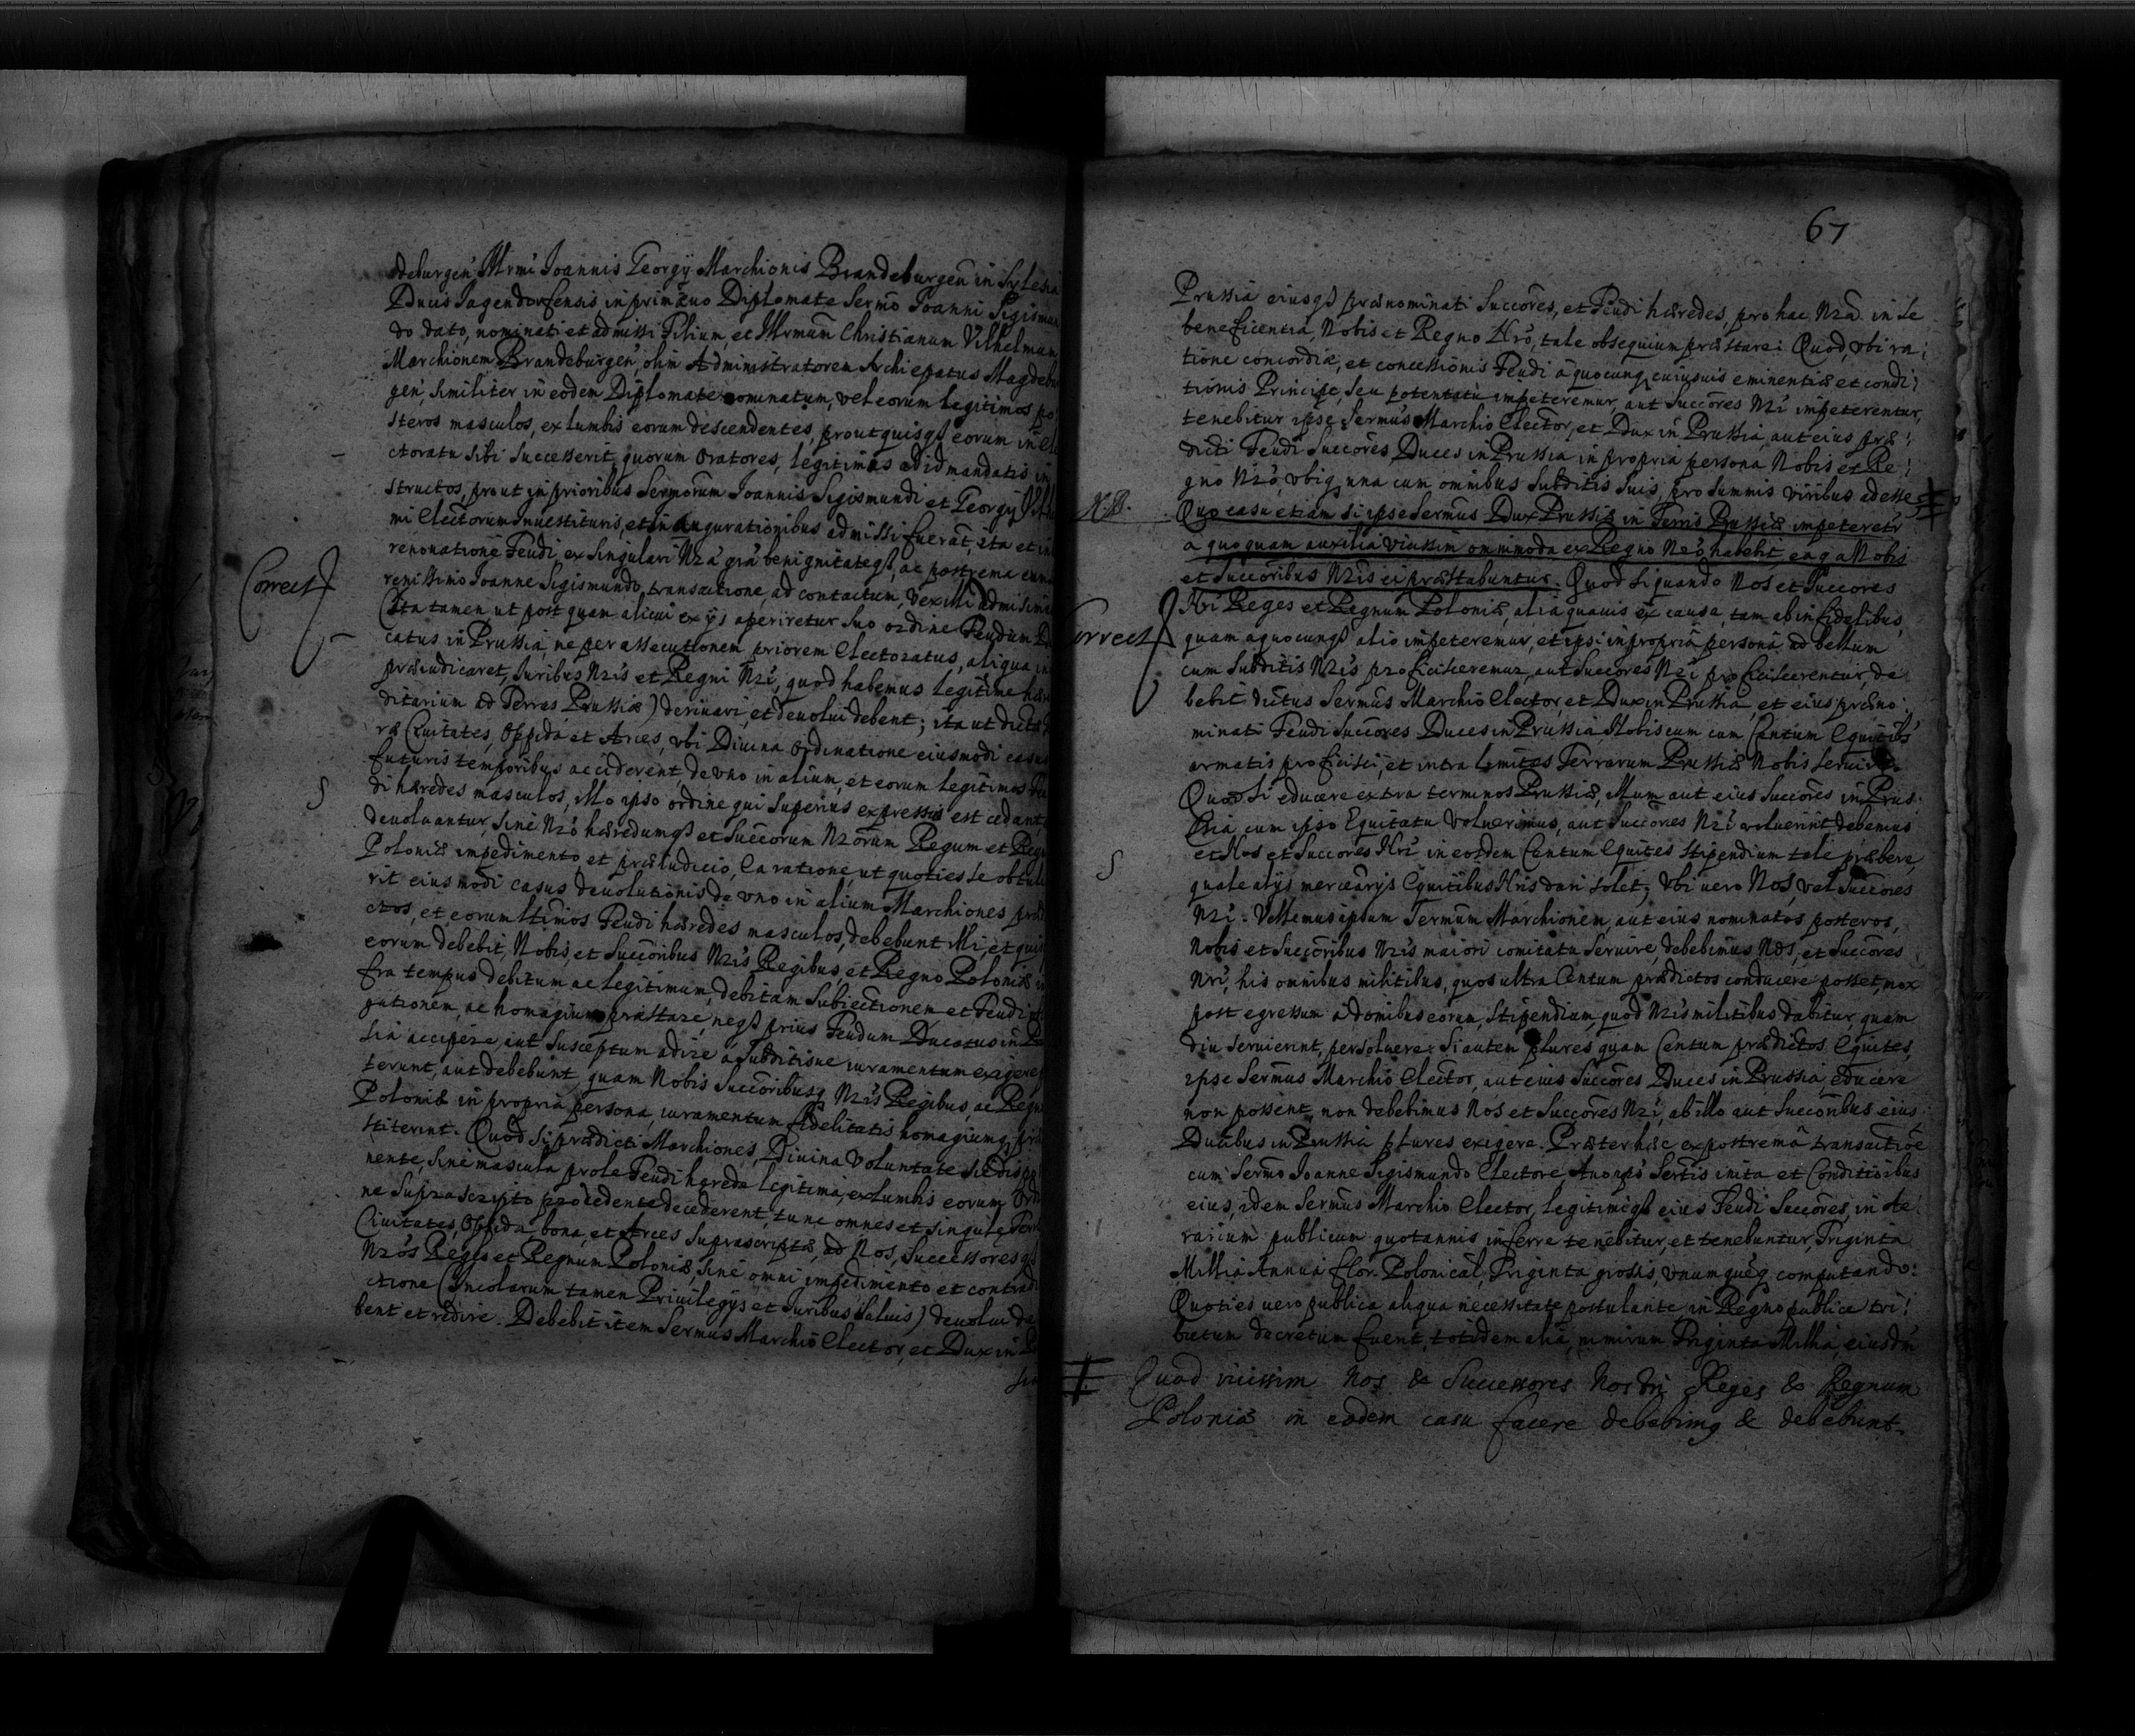 deburgen Illrmi Joannis Georgÿ Marchionis Brandeburgen in Sylesia
Ducis Jagendorfensis in primævo Diplomate Sermo Joanni Sigismun
do dato, nominati et admissi Filium, et Illrmum Christianum Vilhelmum
Marchionem Brandeburgen, olim Administratorem Archiepatus Magdebur
gen similiter in eodem Diplomate nominatum, vel eorum legitimos po
steros masculos, ex lumbis eorum descendentes, prout quisq eorum in el
ctoratu sibi successerit, quorum Oratores, legitimis ad id mandatis in
structos, prout in prioribus Sermorum Joannis Sigismundi et Georgÿ
mi Electorum Inuestituris, et in augurationibus admissi fuerat, ita et in
Correct renouatione Feudi, ex singulari Nra gra benignitateq, ac postrema cum
renissimo Joanne Sigismundo, transactione, ad contactum, Vexilli admisimus
(Ita tamen ut post quam alicui ex ÿs aperiretur suo ordine Feudum
catus in Prussia, ne per assecutionem priorem Electoratus, aliqua in
præiudicaret, Juribus Nris et Regni Nri, quod habemus legitime hære
ditarium ad Terras Prussiæ) deriuari, et deuolui debent; ita ut dicta
ræ Ciuitates, Oppida et Arces, vbi Diuina Ordinatione eiusmodi casus
futuris temporibus acciderent, de vno in alium, et eorum legitimos
di hæredes masculos, illo ipso ordine qui superius expressus est cedant,
deuoluantur, sine Nro hæredumq et Succorum Nrorum Regum et Regni
Poloniæ impedimento et præiudicio, Ea ratione, ut quoties se obtule
rit eiusmodi casus deuolutionis de vno in alium Marchiones præd
ctos, et eorum ltimos Feudi hæredes masculos, debebunt illi, et quis
eorum debebit, Nobis, et Succoribus Nris Regibus, et Regno Poloniæ in
fra tempus debitum ac legitimum, debitam Subiectionem et Feudi
gationem, ac homagium præstare, neq prius Feudum Ducatus in
sia accipere aut susceptum adire a subditisue iuramentum exigere
terunt, aut debebunt, quam Nobis Succoribusq Nris Regibus, ac Regno
Poloniæ in propria persona, iuramentum fidelitatis homagiumq
stiterint. Quod si prædicti Marchiones, Diuina Voluntate sic dispo
nente, sine mascula prole Feudi hærede legitima, ex lumbis eorum Ordi
ne suprascripto procedente decederent, tunc omnes et singulæ Terræ
Ciuitates, Oppida, bona, et Arces suprascriptæ, ad Nos, Successores
Nros Reges et Regnum Poloniæ, sine omni impedimento et contradi
ctione (Incolarum tamen Priuilegÿs et Juribus saluis) deuolui de
bent et redire. Debebit item Sermus Marchio Elector, et Dux in
67
Prussia eiusq prænominati Succores, et Feudi hæredes, pro hac Nra in se
beneficentia, Nobis et Regno Nro, tale obsequium præstare: Quod, vbi ra
tione concordiæ, et concessionis Feudi a quocunq cuiusuis eminentiæ et condi
tionis Principe, seu potentatu impeteremur, aut Succores Nri impeterentur,
tenebitur ipse Sermus Marchio Elector, et Dux in Prussia, aut eius præ
dicti Feudi Succores, Duces in Prussia in propria persona Nobis et Re
gno Nro, vbiq una cum omnibus Subditis suis, pro summis viribus adesse
N.B. Quo casu etiam si ipse Sermus Dux Prussiæ in Terris Prussiæ impeteretr
a quoquam auxilia vicissim omnimoda ex Regno Nro habebit, eaq a Nobis
et Succoribus Nris ei præstabuntur. Quod si quando Nos et Succores
Correct Nri Reges et Regnum Poloniæ, alia quauis ex causa, tam ab infidelibus,
quam a quocunq alio impeteremur, et ipsi in propria persona ad bellum
cum subditis Nris proficisceremur, aut Succores Nri proficiscerentur, de
bebit dictus Sermus Marchio Elector, et Dux in Prussia, et eius præno
minati Feudi Succores Duces in Prussia, Nobiscum cum Centum Equitibs
armatis proficisci, et intra limites Terrarum Prussiæ Nobis seruire.
Quod si educere extra terminos Prussiæ, illum aut eius Succores in Prus
sia cum ipso Equitatu voluerimus, aut Succores Nri voluerint debemus
et Nos et Succores Nri in eosdem Centum Equites stipendium tale præbere,
quale alÿs mercenarÿs Equitibus Nris dari solet; Vbi uero Nos, vel Succores
Nri Vellemus ipsum Sermum Marchionem, aut eius nominatos posteros,
Nobis et Succoribus Nris maiori comitatu seruire, debebimus Nos, et Succores
Nri, his omnibus militibus, quos ultra Centum prædictos conducere posset, mox
post egressum a domibus eorum, stipendium, quod Nris militibus dabitur, quam
diu seruierint, persoluere. Si autem plures quam Centum prædictos Equites,
ipse Sermus Marchio Elector, aut eius Succores Duces in Prussia, educere
non possent, non debebimus Nos et Succores Nri, ab illo aut Succoribus eius
Ducibus in Prussia plures exigere. Præter hæc ex postrema transactione
cum Sermo Joanne Sigismundo Electore, inita et Conditioibus
eius, idem Sermus Marchio Elector, legitimiq eius Feudi Succores, in Ae
rarium publicum quotannis inferre tenebitur, et tenebuntur, Triginta
Millia Annua flor. Polonical, Triginta grossis, vnumqueq computando:
Quoties uero publica aliqua necessitate postulante in Regno publica tri
butum decretum fuerit, totidem alia, nimirum Triginta Millia, eiusdm
Quod vicissim Nos & Successores Nostri Reges & Regnum
Poloniæ in eodem casu facere debebimq & debebunt.